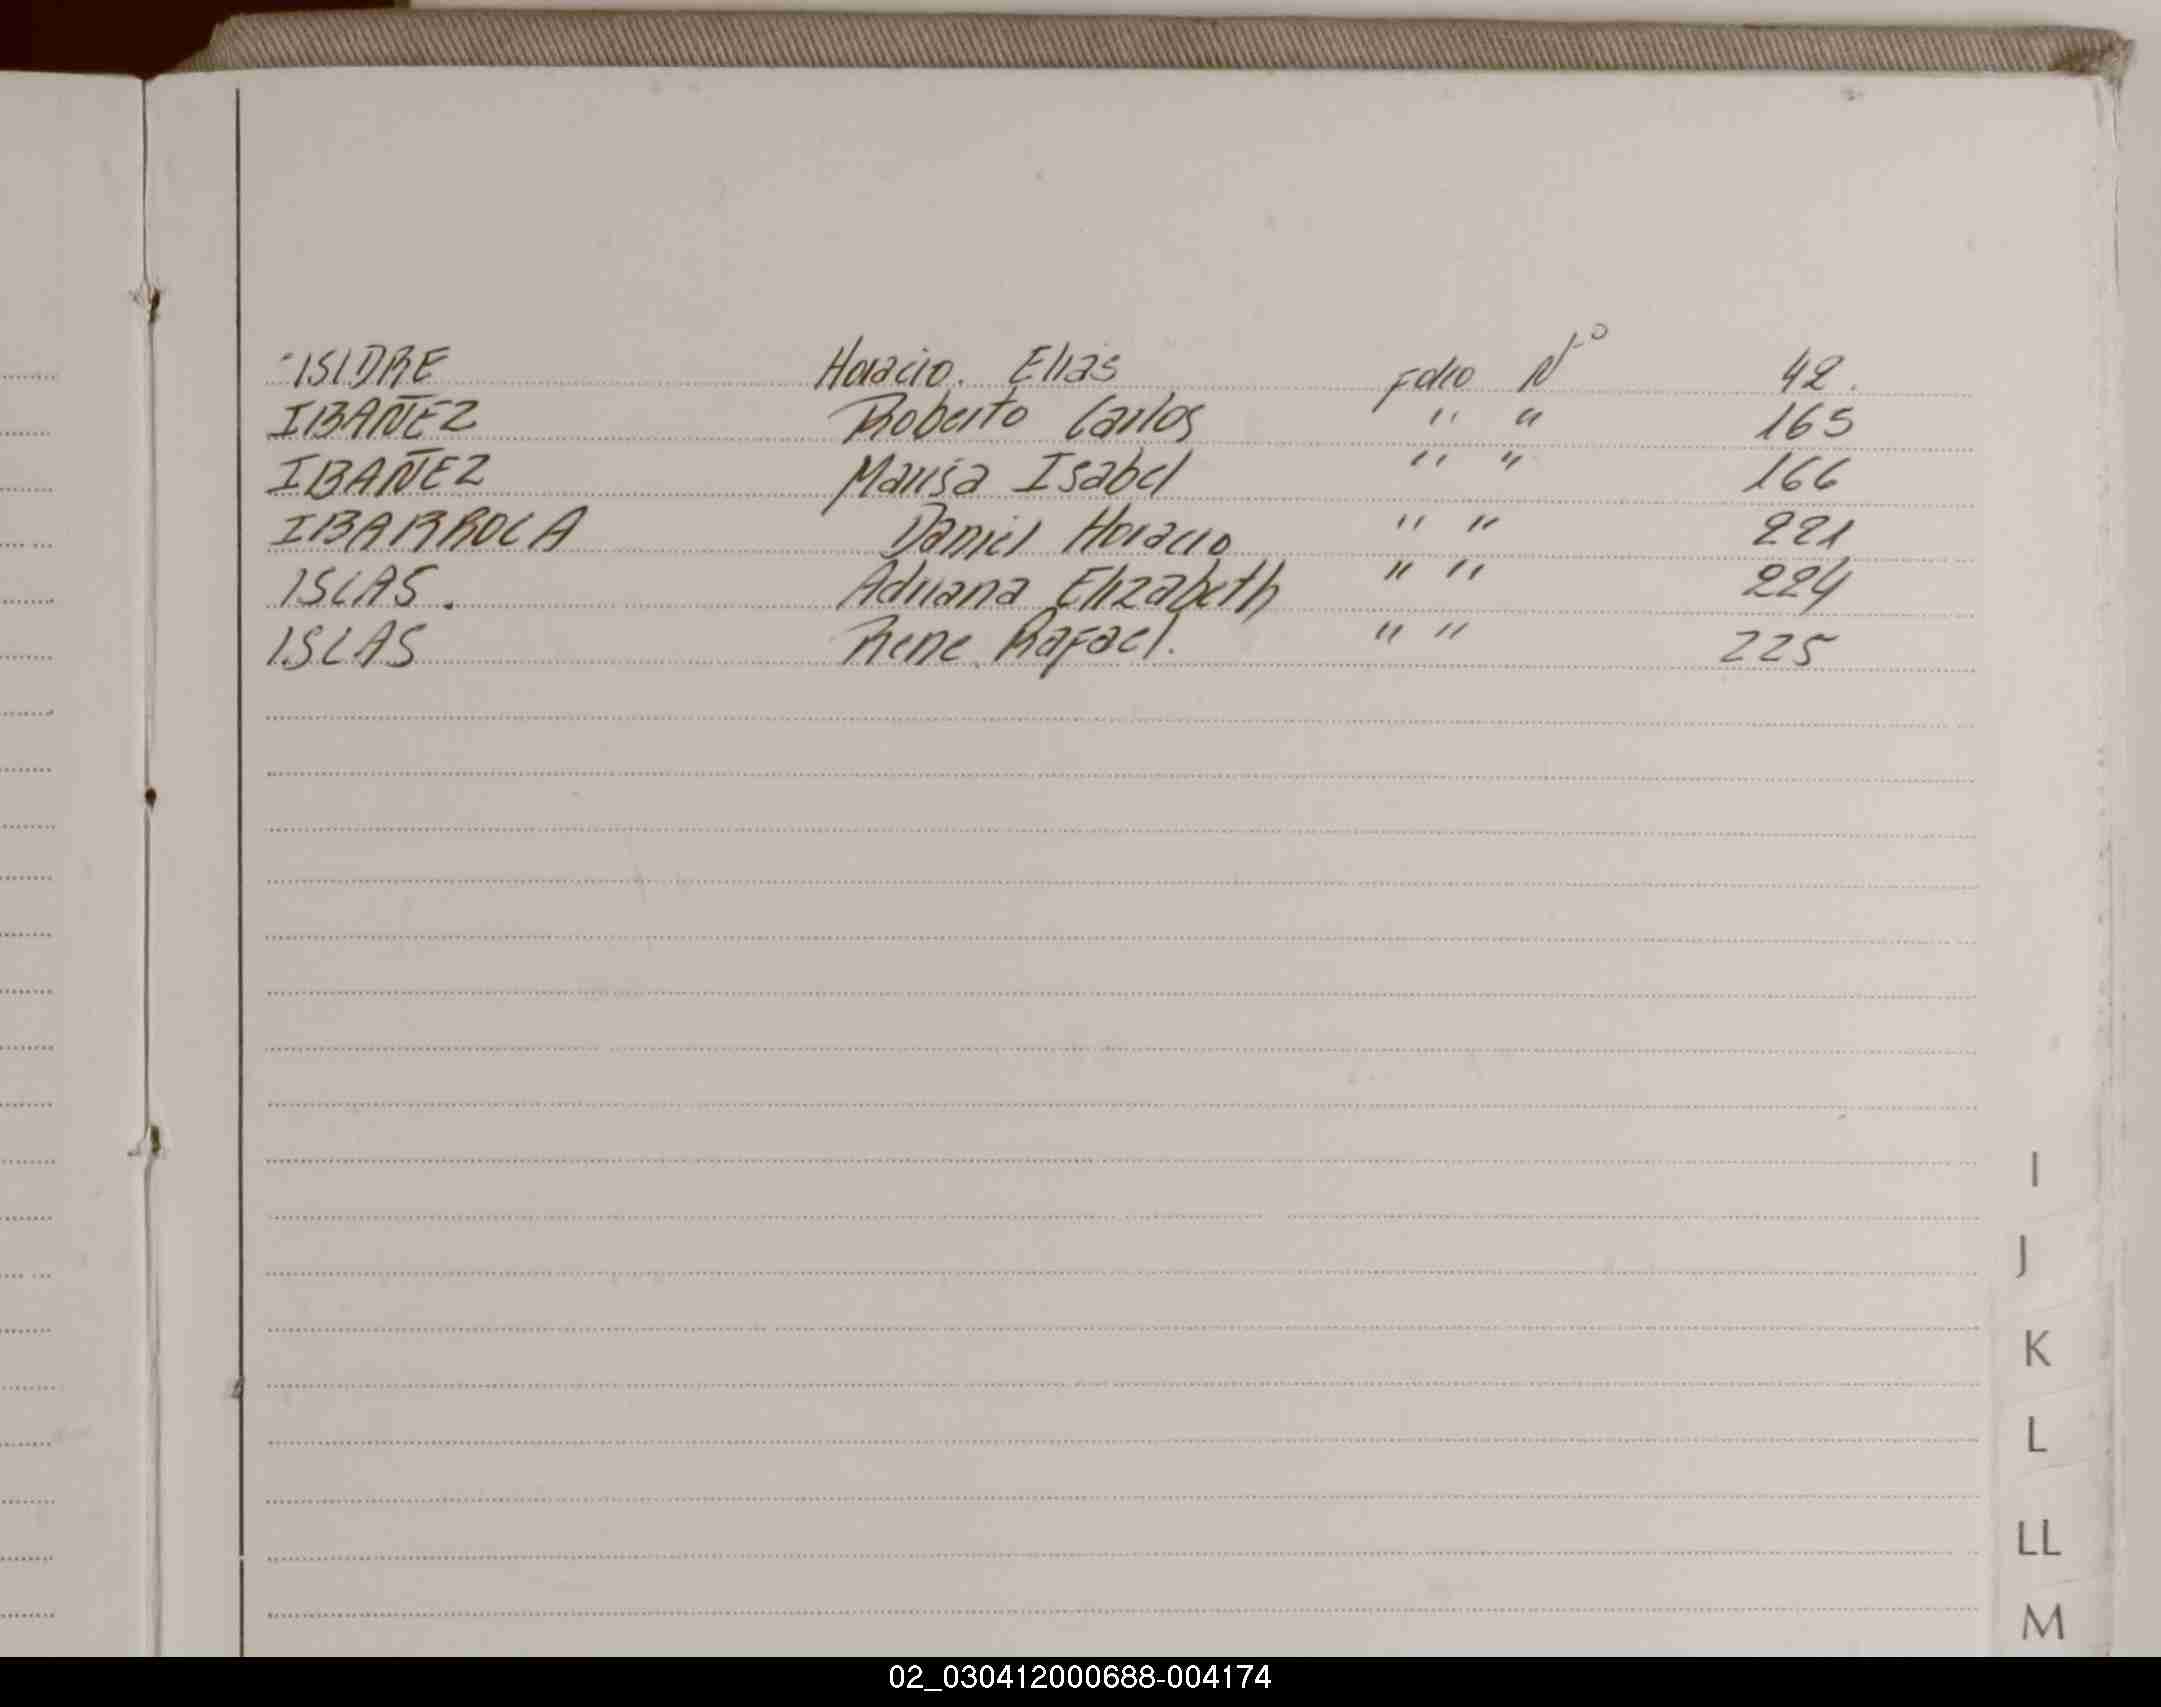 ISIDRE Horacio. Elias Folio Nº 42.
IBAÑEZ Roberto Carlos " " 165
IBAÑEZ Marisa Isabel " " 166
IBARROLA Daniel Horacio " " 221
ISLAS. Adriana Elizabeth " " 224
ISLAS Rene Rafael. " " 225
I
J
K
L
LL
M
02_030412000688-004174